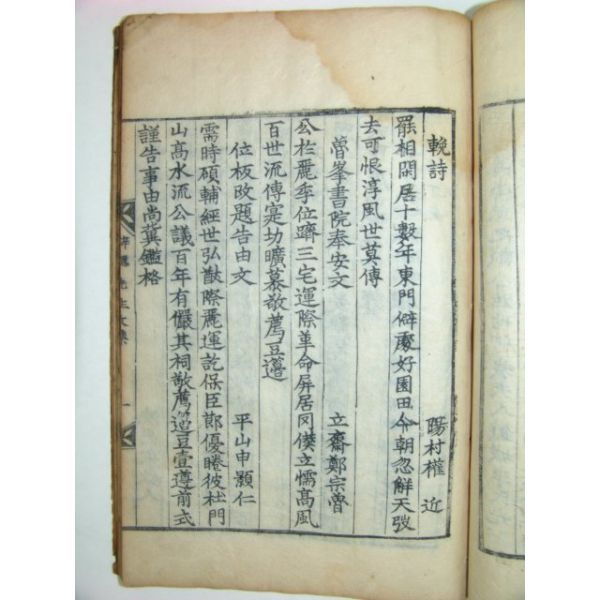 輓詩 陽村權 近
罷相閑居十數年東門僻處好園田今朝忽解天弢
去可恨淳風世莫傳
魯峯書院奉安文 立齋鄭宗魯
公於麗季位躋三宅運際革命屏居罔僕立懦高風
百世流傳寔切曠慕敬薦豆籩
位板改題告由文 平山申顥仁
需時碩輔經世弘猷際麗運訖保臣節優睠彼杜門
山高水流公議百年有儼其祠敬薦籩豆壹遵前式
謹告事由尚冀鑑格
先生文集
一